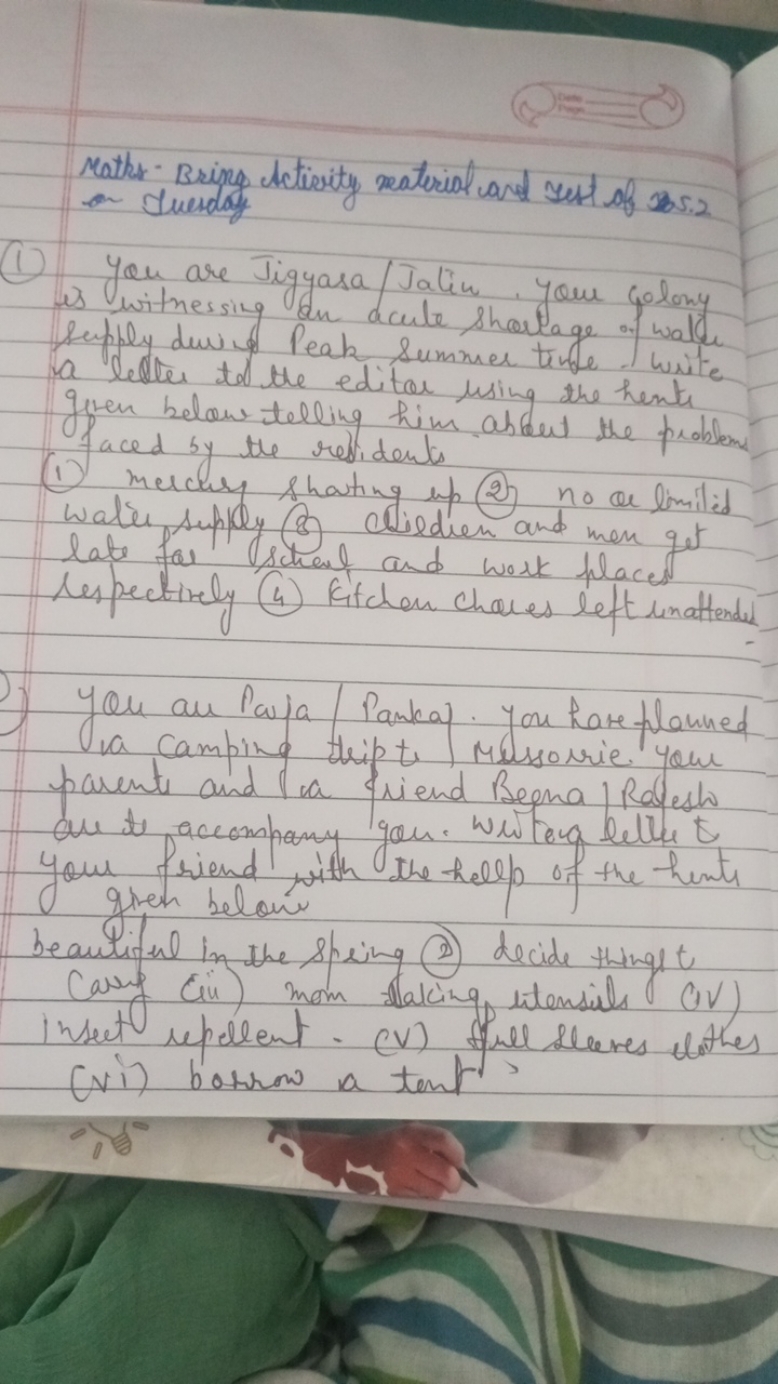 Maths - Bring Activity material and test of 5.2
on Tuesday
① You are Jigyasa / Jatin. Your colony
is witnessing an acute shortage of water
supply during Peak Summer time. Write
a letter to the editor using the hents
given below telling him about the problems
faced by the residents
① mercury shoting up ② no or limited
water supply ③ children and men get
late for school and work places
respectively ④ Kitchen chores left unattended
You are Pooja / Pankaj. You have planned
a camping trip to Mussorrie. Your
parents and a friend Beena / Rajesh
are to accompany you. Write a letter to
your friend with the hellp of the hents
given below
beautiful in the spring ② decide things to
carry (iii) mom taking utensils (iv)
insect repellent. (v) full sleeves clothes
(vi) borrow a tent